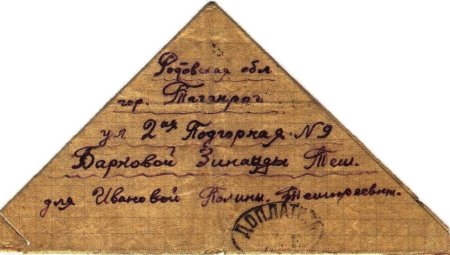 Ростовская обл
гор. Таганрог
ул 2ая Подгорная N9
Барковой Зинаиды Тим.
для Ивановой Полины
ДОПЛАТИТЬ